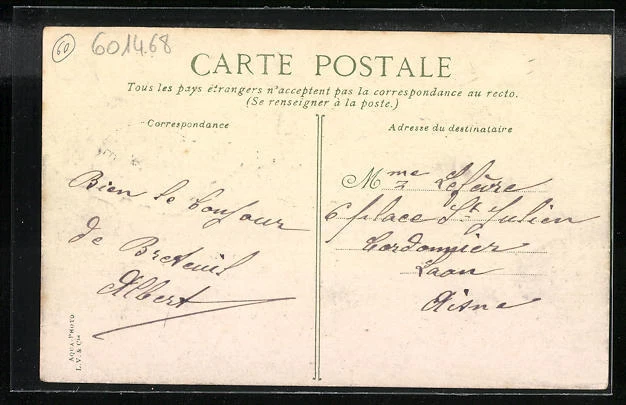 60
601468
CARTE POSTALE
Tous les pays étrangers n'acceptent pas la correspondance au recto.
(Se renseigner à la poste.)
Correspondance
Adresse du destinataire
Bien le bonjour
de Breteuil
Albert
Mme Lefèvre
6 place St Julien
Cordonnier
Laon
Aisne
AQUA-PHOTO
L.V. & Cie